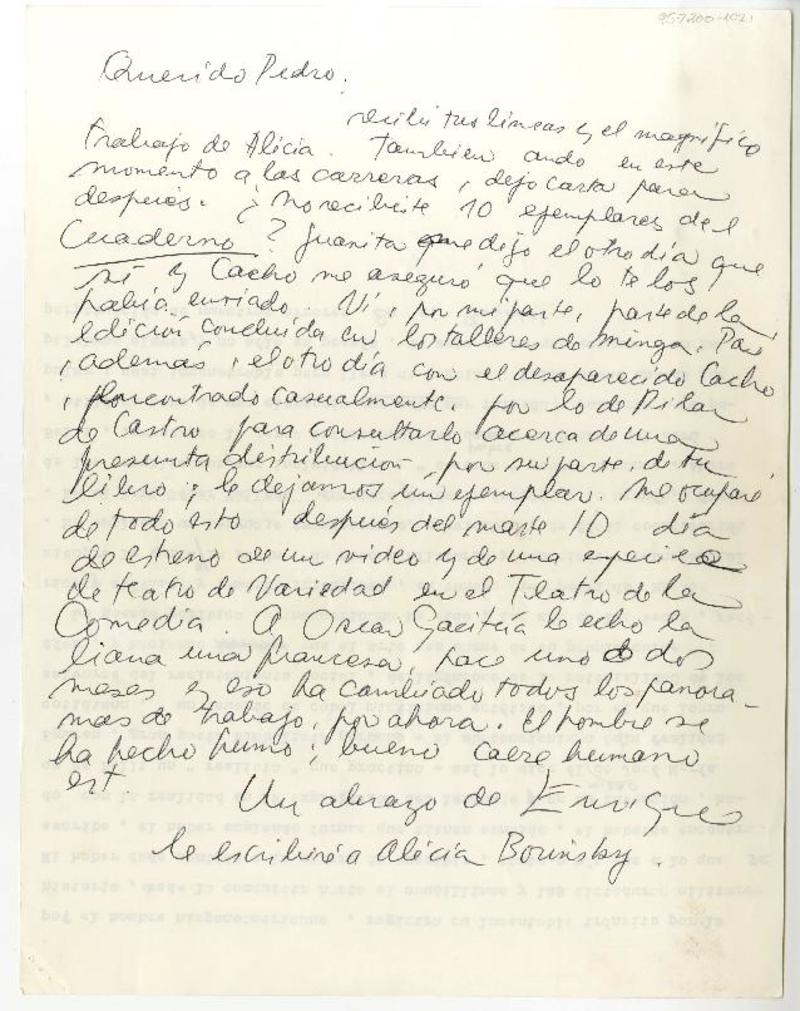 957200-1021
Querido Pedro:
recibí tus líneas y el magnífico
trabajo de Alicia. También ando en este
momento a las carreras, dejo carta para
después. ¿No recibiste 10 ejemplares del
Cuaderno? Juanita me dijo el otro día que
sí y Cacho me aseguró que lo te los
había enviado. Ví, por mi parte, parte de la
edición concluida en los talleres de Minga. Pasé
, además, el otro día con el desaparecido Cacho
, encontrado casualmente. por lo de Pilar
de Castro para consultarlo acerca de una
presunta distribución por su parte. de tu
libro; le dejamos un ejemplar. Me ocuparé
de todo esto después del marte 10 día
de estreno de un video y de una
de teatro de Variedad en el Teatro de la
Comedia. A Oscar Gacitúa le echo la
liana una francesa, hace uno o dos
meses y eso ha cambiado todos los panora-
mas de trabajo, por ahora. El hombre se
ha hecho humo; bueno caere humano
est.
Un abrazo de Enrique
le escribiré a Alicia Borinsky.